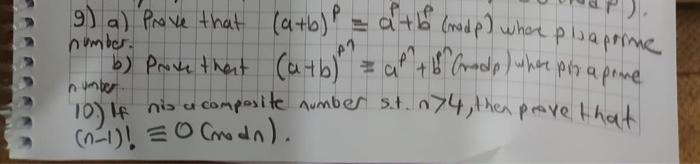 9) a) Prove that (a+b)^p ≡ a^p + b^p (mod p) where p is a prime
number.
b) Prove that (a+b)^p^n ≡ a^p^n + b^p^n (mod p) where p is a prime
number.
10) If n is a composite number s.t. n>4, then prove that
(n-1)! ≡ 0 (mod n).